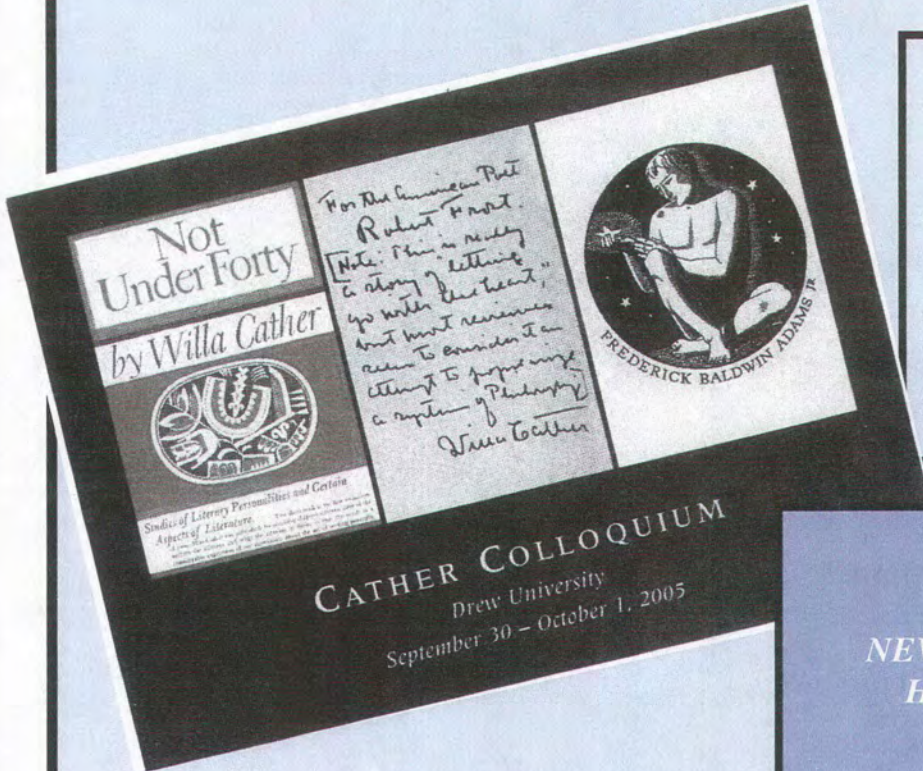 Not
Under Forty
by Willa Cather
Studies of Literary Personalities and Certain
Aspects of Literature.
For the American Poet
Robert Frost.
[Note: This is really
a story of "letting
go with the heart,"
but most reviewers
seem to consider it an
attempt to
a system of Philosophy]
Willa Cather
FREDERICK BALDWIN ADAMS JR
CATHER COLLOQUIUM
Drew University
September 30 – October 1, 2005
NEV
H